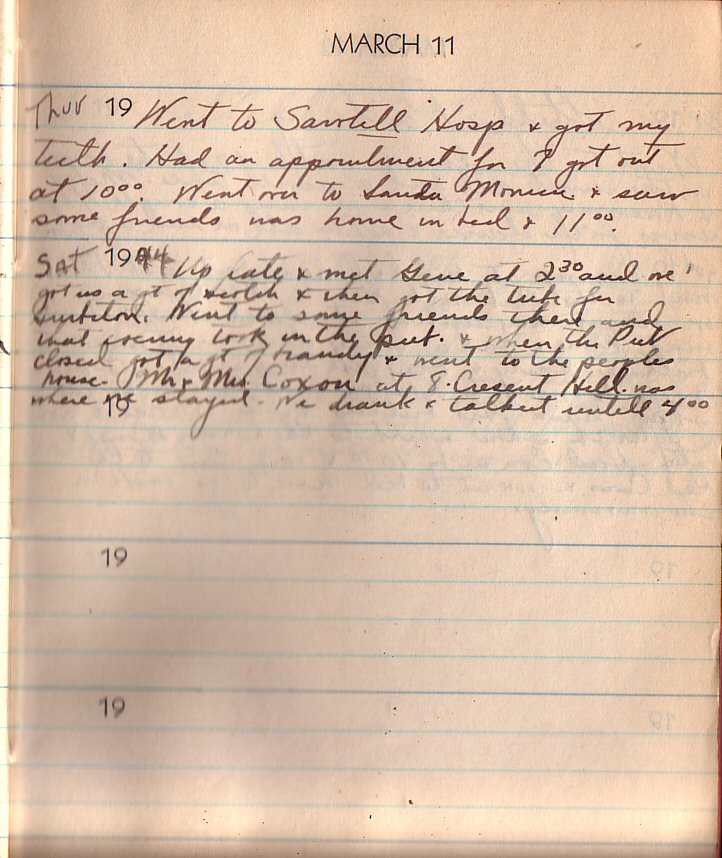 MARCH 11
Thur 19 Went to Sawtell Hosp & got my
teeth. Had an appointment for I got out
at 10°° Went over to Santa Monica & saw
some friends was home in bed & 11°°.
SAT 1944 Up late & met Gene at 2³⁰ and we
got us a qt of scotch & then got the tube for
Surbiton. Went to some friends there and
that evening took in the pub. & when the Pub
closed got a qt of brandy & went to the peoples
house. Mr & Mrs Coxon at 8 Cresent Hill. was
where we stayed. We drank & talked untill 4°°
19
19
19